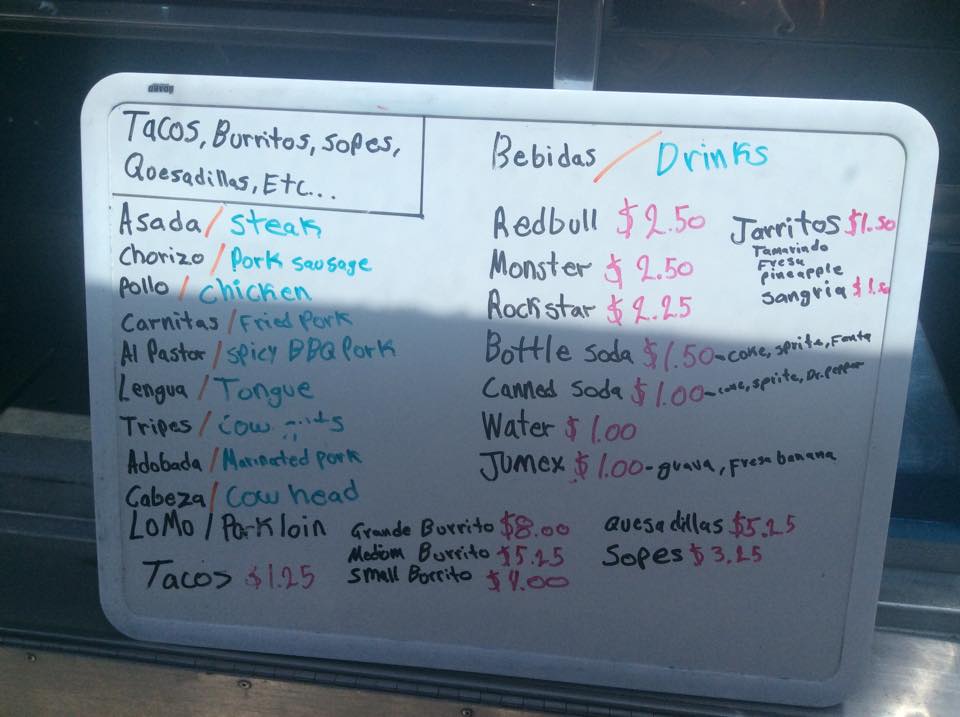 Tacos, Burritos, Sopes,
Quesadillas, Etc...
Asada / Steak
Chorizo / Pork sausage
Pollo / Chicken
Carnitas / Fried Pork
Al Pastor / Spicy BBQ Pork
Lengua / Tongue
Tripes / Cow
Adobada / Marinated Pork
Cabeza / Cow head
LoMo / Porkloin
Tacos $1.25
Grande Burrito $8.00
Medium Burrito $5.25
Small Burrito $4.00
Quesadillas $5.25
Sopes $3.25
Bebidas / Drinks
Redbull $2.50
Monster $2.50
Rockstar $2.25
Bottle soda $1.50-coke, sprite, Fanta
Canned soda $1.00-coke, sprite, Dr. Pepper
Water $1.00
Jumex $1.00-guava, Fresa banana
Jarritos $1.50
Tamarindo
Fresa
pineapple
sangria $1.50